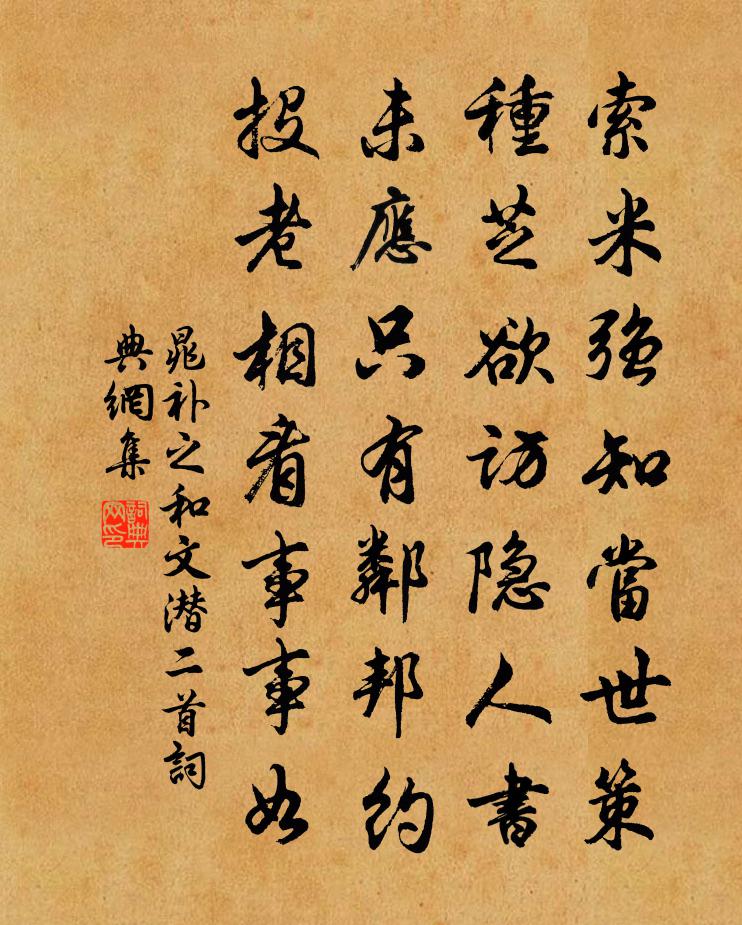 索米強知當世策
種芝欲访隐人書
未應只有鄰邦約
投老相看事事如
晁补之和文潜二首詞
典網集
詞典
网印